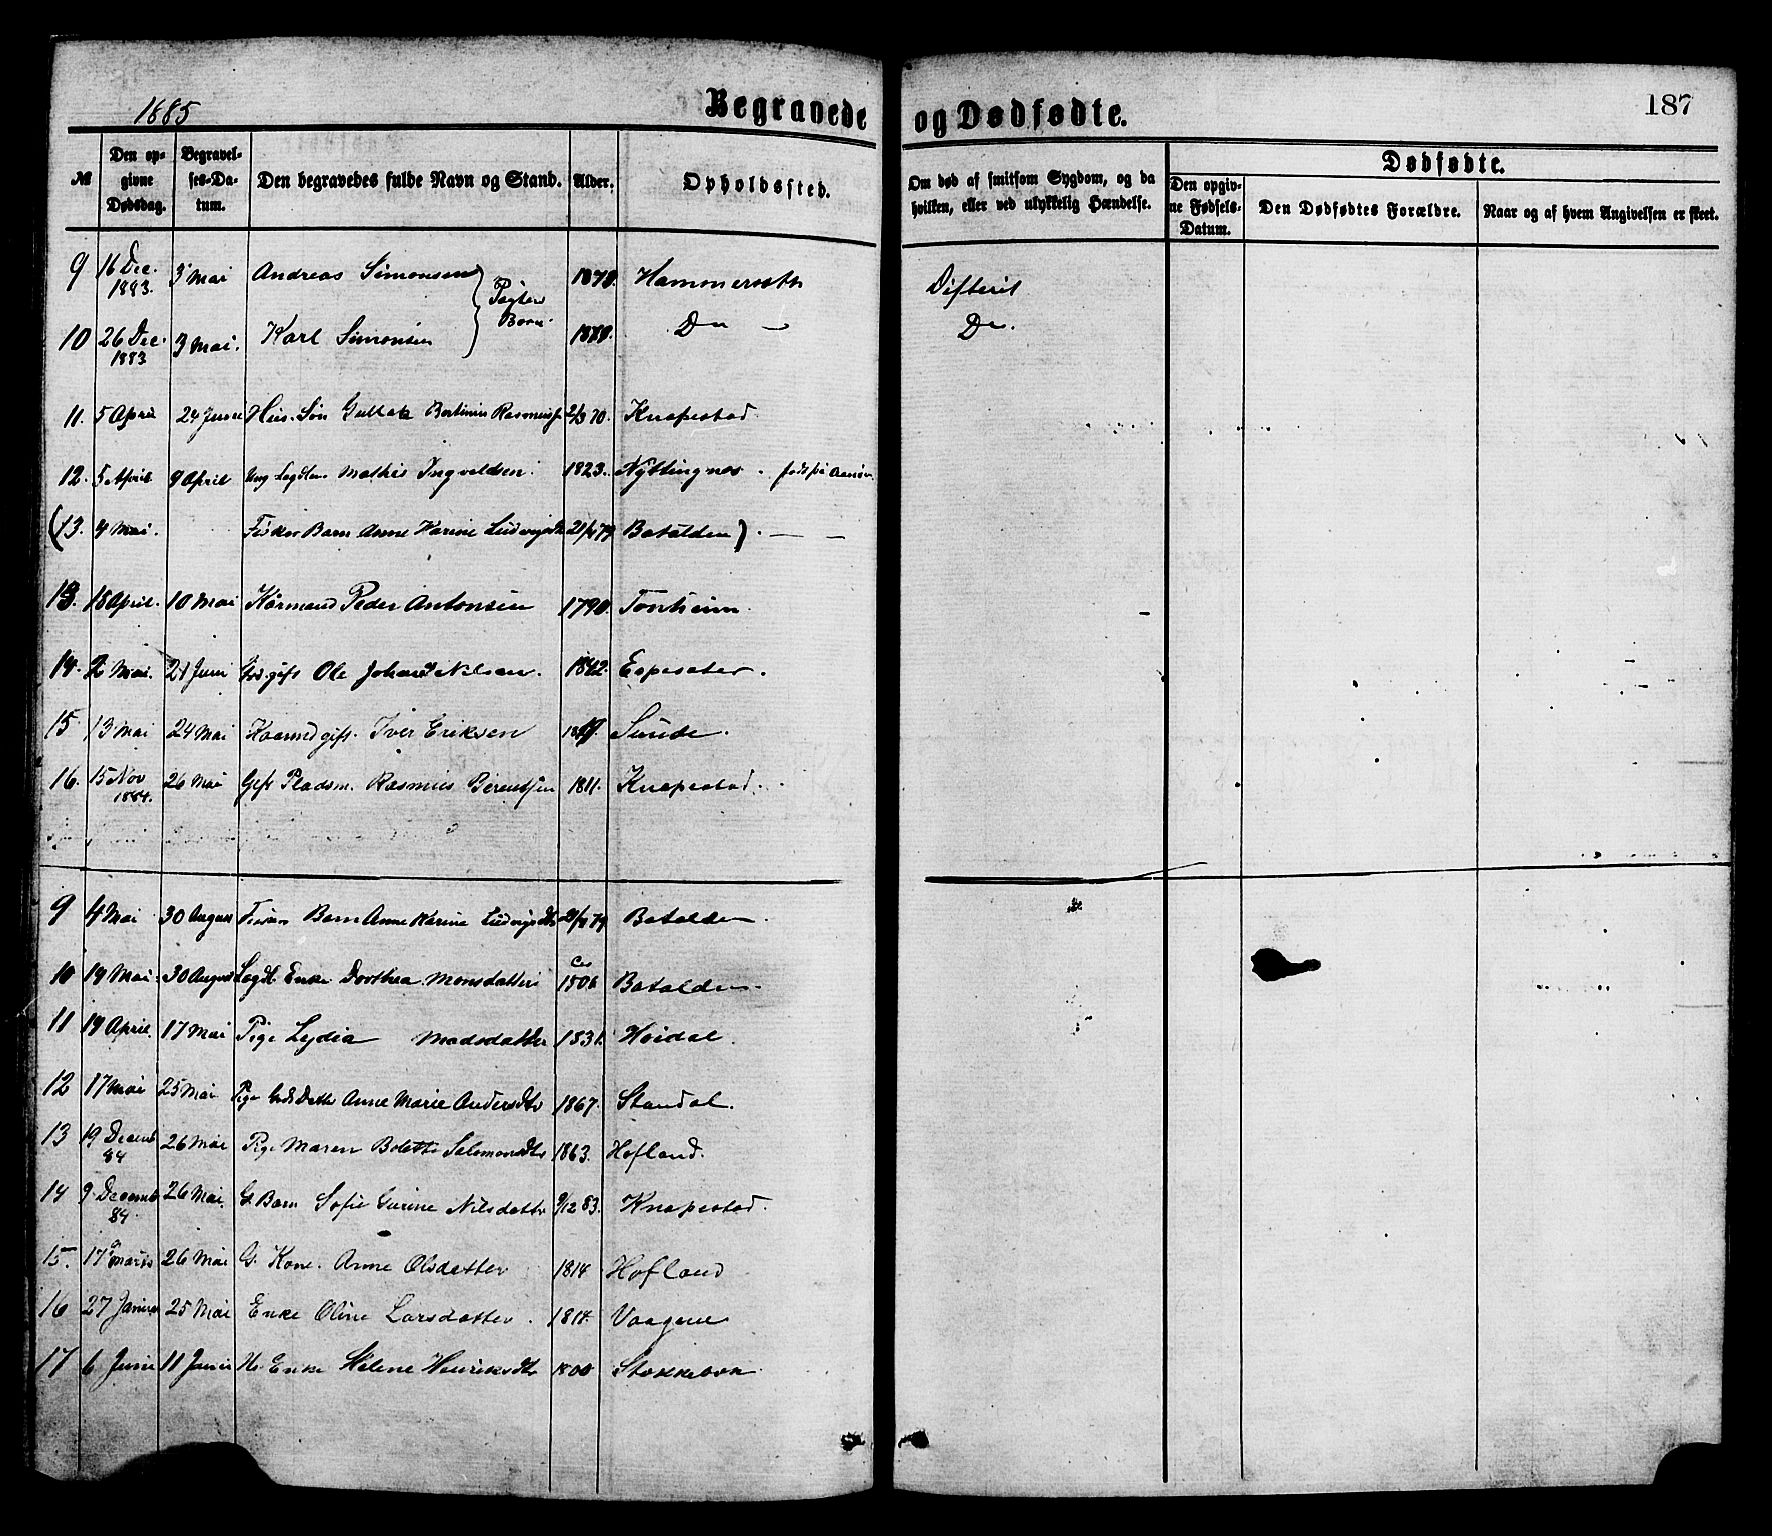 1885
Begravede og Dødfødte.
187
№
Den opgivne Dødsdag.
Begravelses-Datum.
Den begravedes fulde Navn og Stand.
Alder.
Opholdssted.
Om død af smitsom Sygdom, og da hvilken, eller ved ulykkelig Hændelse.
Dødfødte.
Den opgivne Fødsels-Datum.
Den Dødfødtes Forældre.
Naar og af hvem Angivelsen er skeet.
9 16 Dec. 1883. 3 Mai Andreas Simonsen 1878. Hammerseth Difterit
Børn
10 26 Dec. 1883 3 Mai. Karl Simonsen Do — Do.
11. 5 April 24 Juni Søn Bertinius Rasmuss. 2/3 70. Knapestad
12. 5 April 9 April Mathis Ingvaldsen. 1823. Nyttingnes. født på
(13. 4 Mai. Fisker Barn Anne Karine Ludvigsdtr 79. Batalden). — —
13. 18 April. 10 Mai Kårmand Peder Antonsen 1790. Tonheim.
14. 2 Mai. 21 Juni gift Ole Johan Nilsen. 1842. Espeseter.
15. 13 Mai 24 Mai Kaarmd gift. Iver Eriksen Sunde.
16. 15 Nov 1884. 26 Mai Gift Pladsm. Rasmus Berentsen 1811. Knapestad.
9 4 Mai 30 August Fisker Barn Anne Karine Ludvigsdtr 79. Batalden.
10 19 Mai. 30 August Lægd. Enke Dorthea Monsdatter ca Batalden.
11 19 April. 17 Mai Pige Lydia Madsdatter 1831. Høidal.
12 17 Mai 25 Mai Pige Datter Anne Marie Andersdtr 1867. Standal.
13 19 Decemb 84 26 Mai Pige Maren Bolette Salomonsdtr 1863. Hofland.
14 9 Decemb 84. 26 Mai. G. Barn Sofie Gurine Nilsdatter 9/12 83. Knapestad.
15. 17 Marts 26 Mai G. Kone. Anne Olsdatter 1814 Hofland
16 27 Januar 25 Mai Enke Oline Larsdatter. 1814. Vaagene
17 6 Juni 11 Juni Enke Helene Henriksdtr 1800 Stokkebøe.